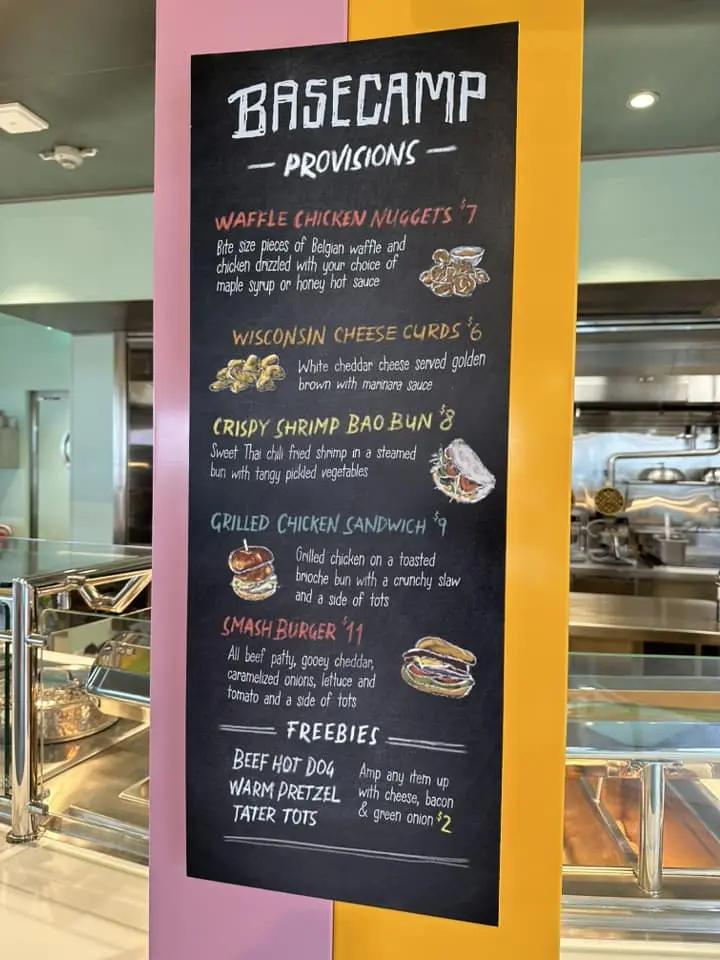 BASECAMP
— PROVISIONS —
WAFFLE CHICKEN NUGGETS $7
Bite size pieces of Belgian waffle and
chicken drizzled with your choice of
maple syrup or honey hot sauce
WISCONSIN CHEESE CURDS $6
White cheddar cheese served golden
brown with marinara sauce
CRISPY SHRIMP BAO BUN $8
Sweet Thai chili fried shrimp in a steamed
bun with tangy pickled vegetables
GRILLED CHICKEN SANDWICH $9
Grilled chicken on a toasted
brioche bun with a crunchy slaw
and a side of tots
SMASH BURGER $11
All beef patty, gooey cheddar,
caramelized onions, lettuce and
tomato and a side of tots
FREEBIES
BEEF HOT DOG
WARM PRETZEL
TATER TOTS
Amp any item up
with cheese, bacon
& green onion $2